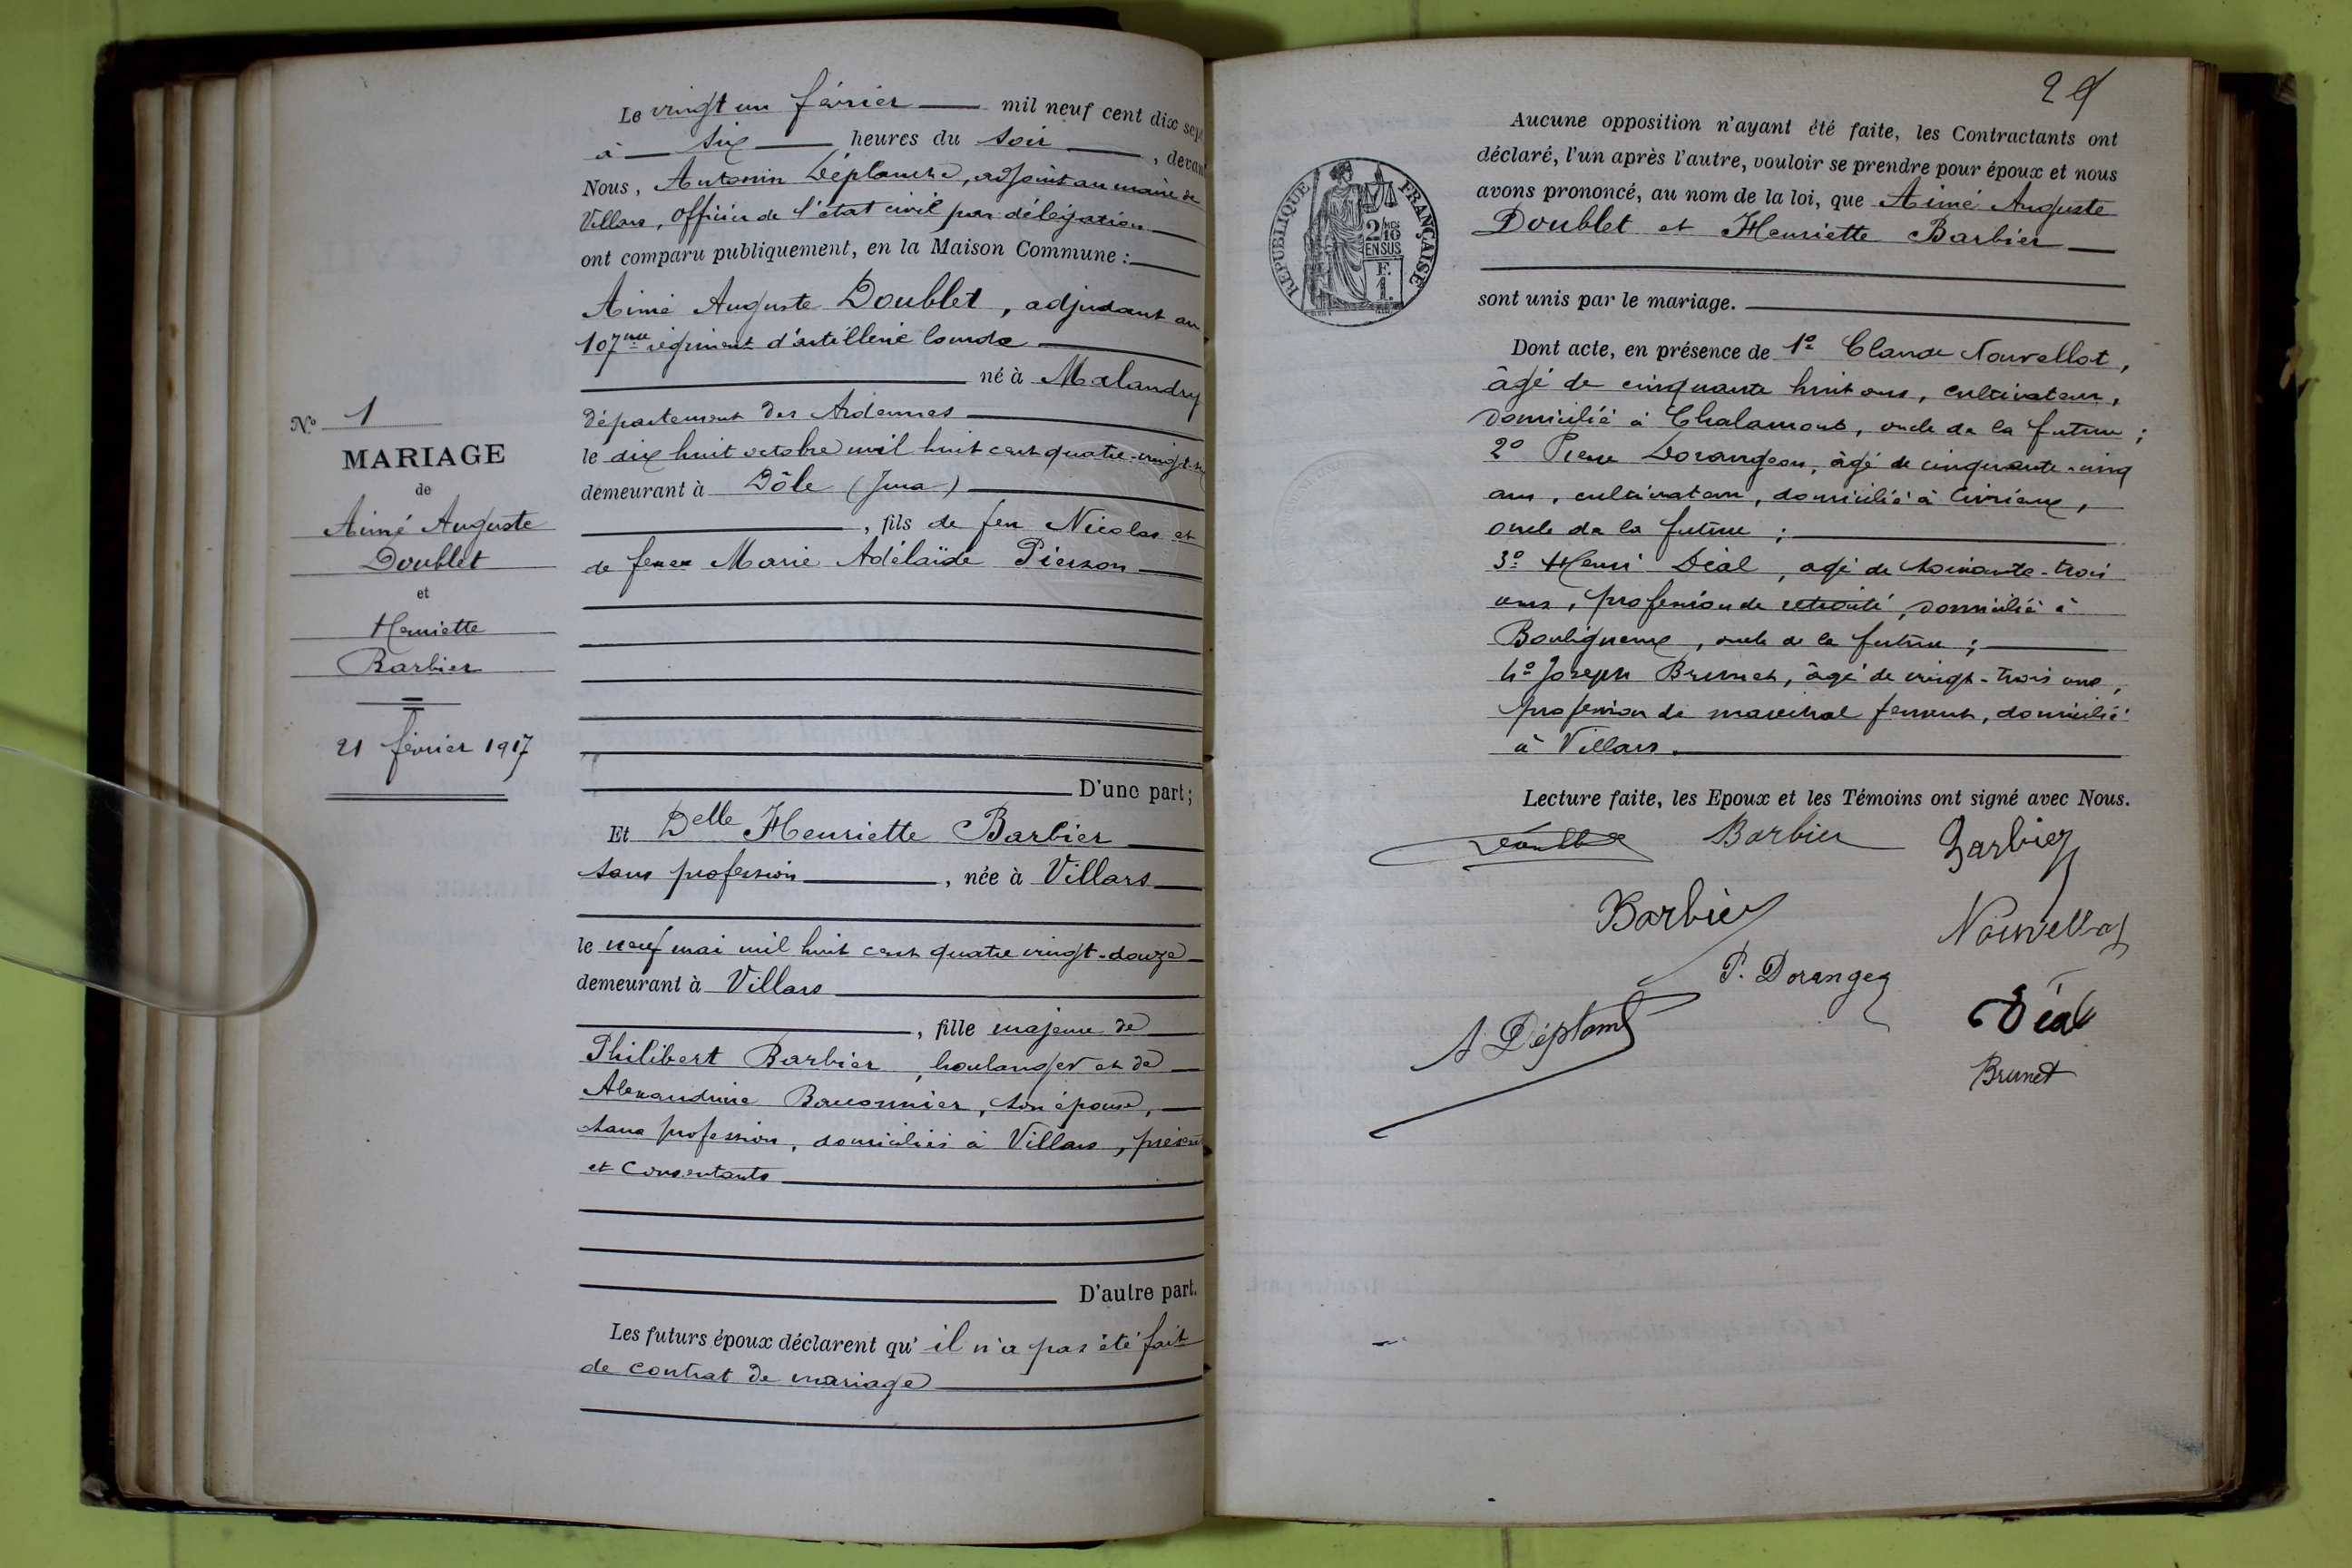 Le vingt un février mil neuf cent dix sept
à six heures du soir, devant
Nous, Antonin Déplanche, adjoint au maire de
Villars, officier de l'état civil par délégation
ont comparu publiquement, en la Maison Commune :
Aimé Auguste Doublet, adjudant au
107me régiment d'artillerie lourde
né à Malandry
département des Ardennes
le dix huit octobre mil huit cent quatre-vingt
demeurant à Dôle (Jura)
, fils de feu Nicolas et
de feue Marie Adélaïde Pierson
Nº 1
MARIAGE
de
Aimé Auguste
Doublet
et
Henriette
Barbier
21 février 1917
D'une part;
Et Delle Henriette Barbier
sans profession, née à Villars
le neuf mai mil huit cent quatre vingt-douze
demeurant à Villars
, fille majeure de
Philibert Barbier, boulanger et de
Alexandrine Bouvonnier, son épouse,
sans profession, domiciliés à Villars, présents
et consentants
D'autre part.
Les futurs époux déclarent qu'il n'a pas été fait
de contrat de mariage
29
REPUBLIQUE FRANÇAISE
2/10
EN SUS
F.
1.
Aucune opposition n'ayant été faite, les Contractants ont
déclaré, l'un après l'autre, vouloir se prendre pour époux et nous
avons prononcé, au nom de la loi, que Aimé Auguste
Doublet et Henriette Barbier
sont unis par le mariage.
Dont acte, en présence de 1º Claude Nouvellot,
âgé de cinquante huit ans, cultivateur,
domicilié à Chalamont, oncle de la future ;
2º Pierre Dorangeon, âgé de cinquante-cinq
ans, cultivateur, domicilié à Civrieux,
oncle de la future ;
3º Henri Déal, agé de soixante-trois
ans, profession de retraité, domicilié à
Bouligneux, oncle de la future ;
4º Joseph Brunet, âgé de vingt-trois ans,
profession de maréchal ferrant, domicilié
à Villars.
Lecture faite, les Epoux et les Témoins ont signé avec Nous.
Barbier Barbier
Barbier Nouvellot
P. Dorangeo
A Déplan Déal
Brunet